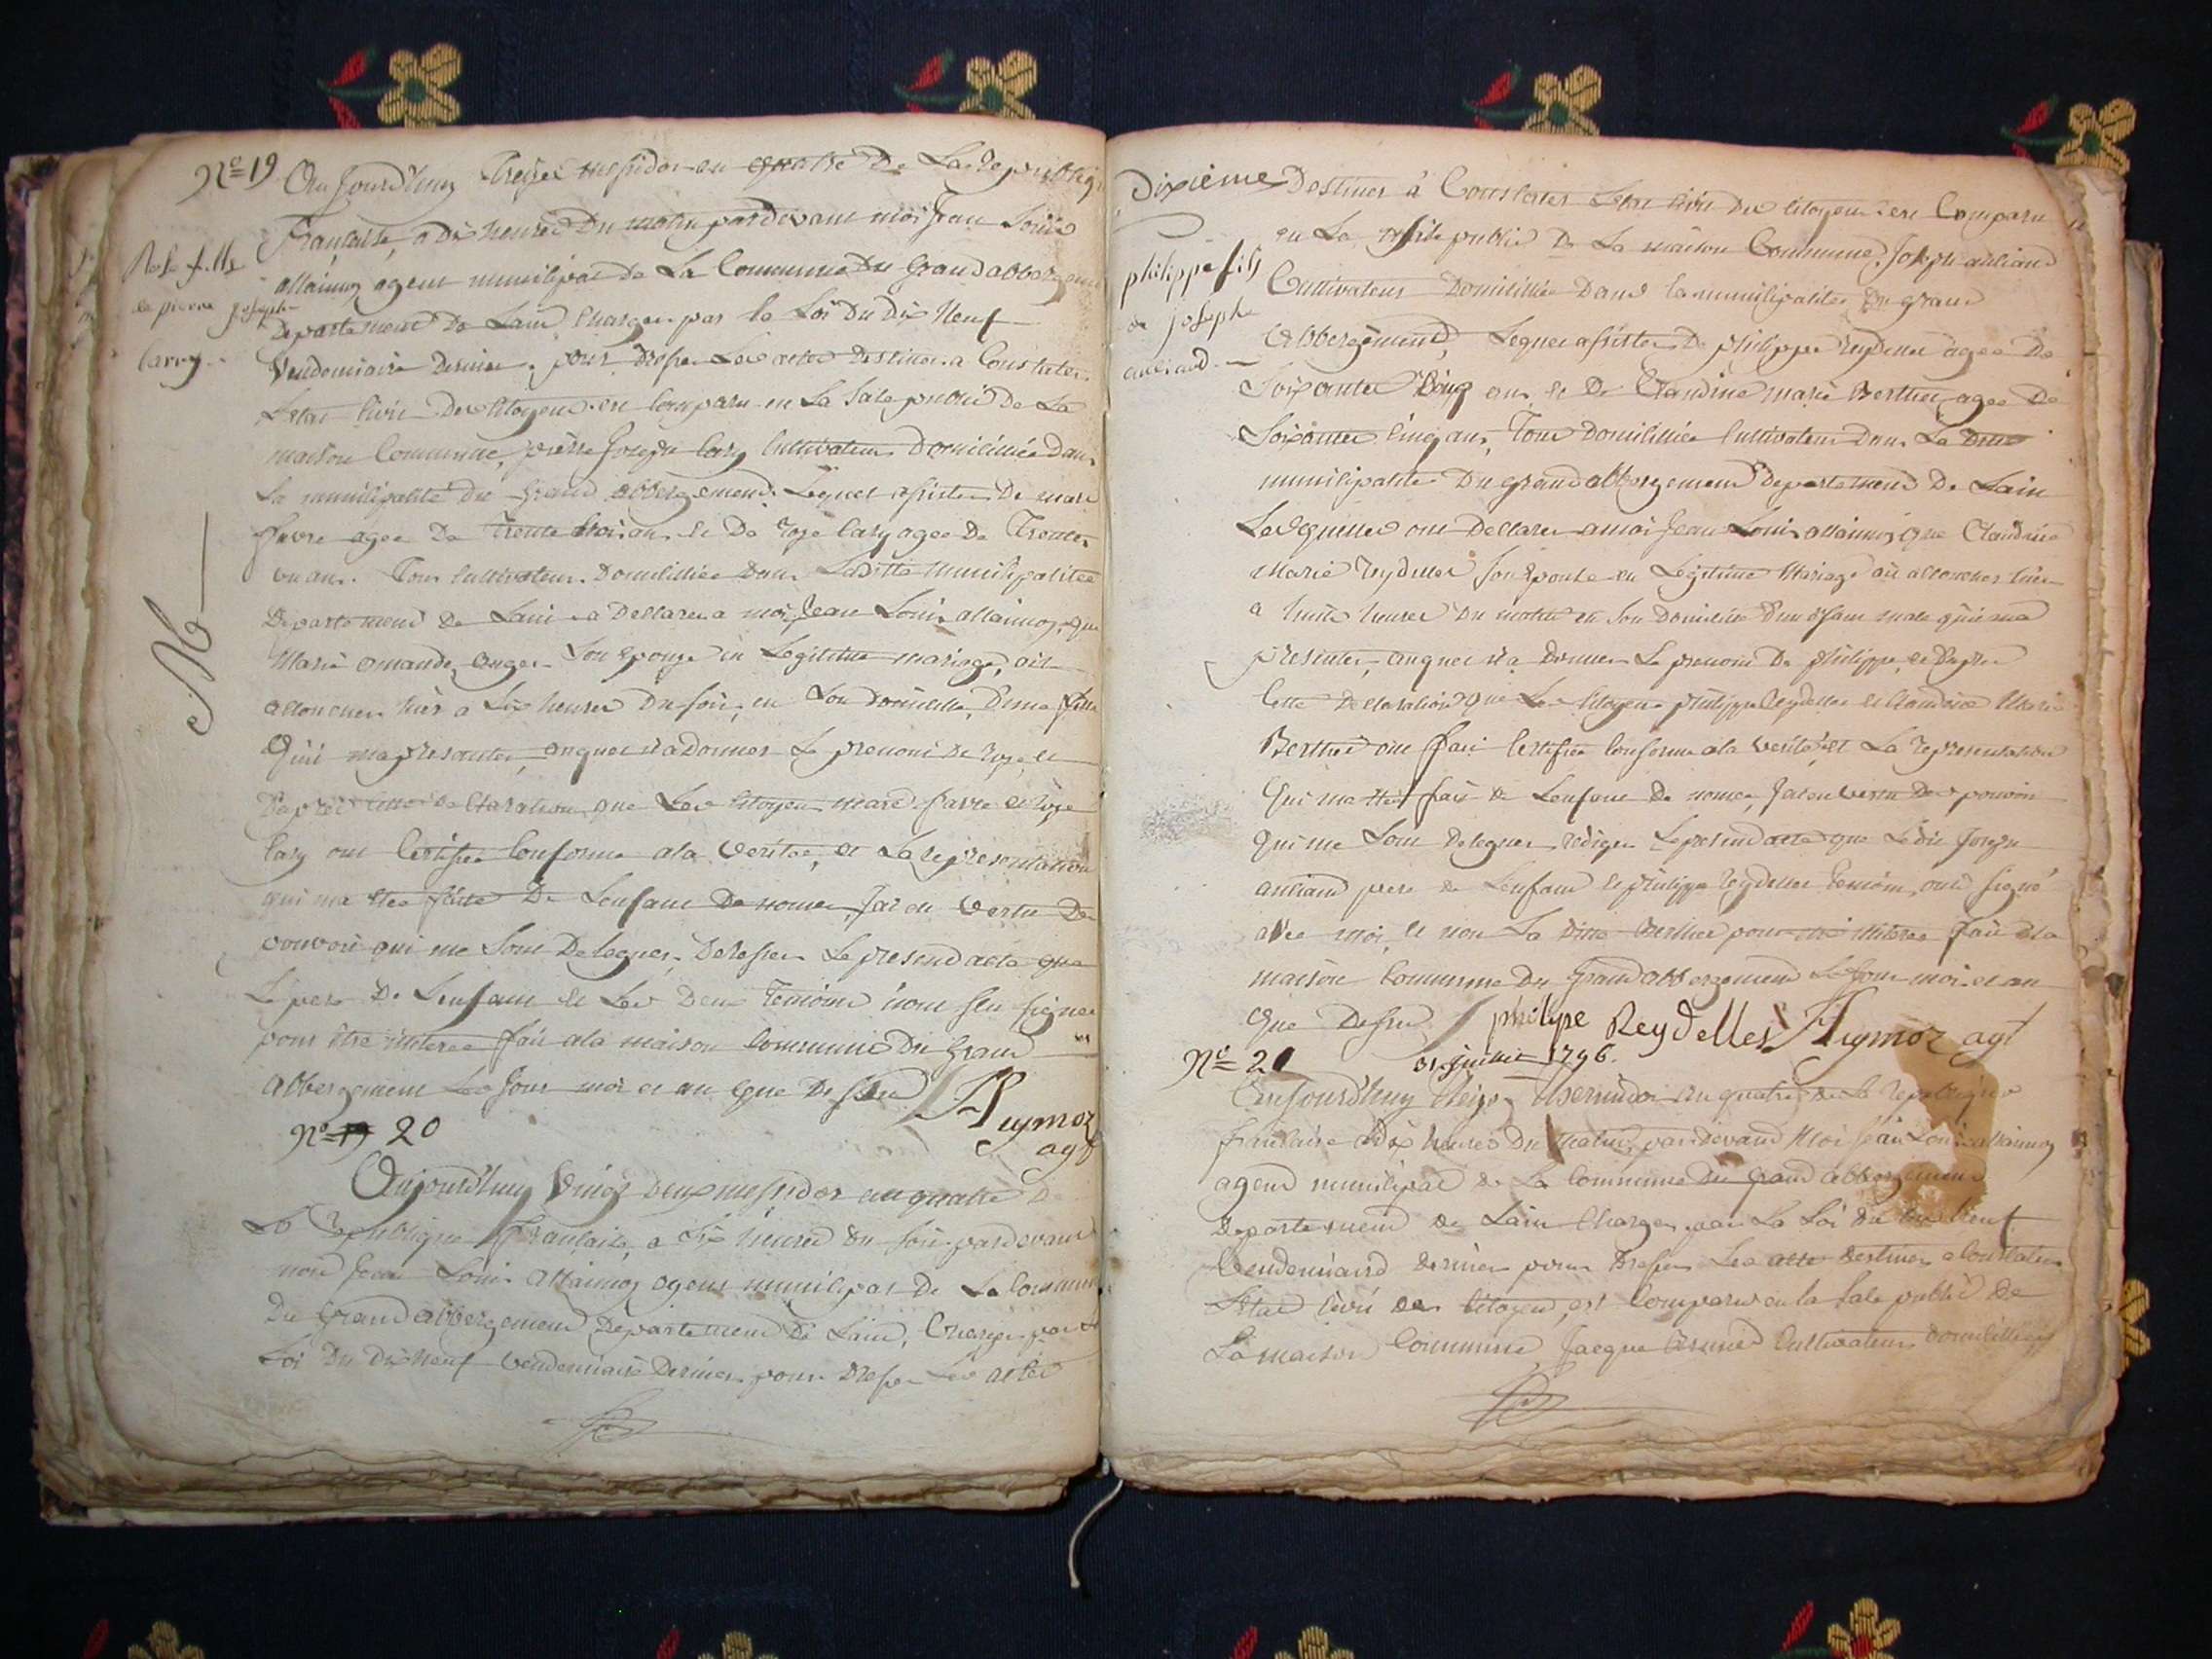 N° 19 Aujourd'huy treize messidor an quatre De La Republiq
Française, a Dix heures Du matin pardevant moi Jean Louis
Rose fille
de pierre joseph
Carry
allaimoz agent municipal de La Commune Du Grand abbergement
Departement De Lain Charger par la Loi Du Dix Neuf
Vendemiaire Dernier, pour Dresser Les actes Destines a Constater
Letat Civil Des Citoyens est Comparu en La Sale public De La
maison Commune, pierre Joseph Cary Cultivateur Domicilliée Dans
La municipalité Du Grand abbergement Lequel assister De marc
favre agee De Trente trois ans et De roze Cary agee De Trente
un ans. Tous Cultivateur Domicilliée Dans Laditte municipalitée
Departement De Lain a Dellarer a moi Jean Louis allaimoz, que
Marie amande Anger Son Epouze en Legitime mariage, ait
accoucher hier a Six heures Du Soir, en Son Domicille, Dune fille
Qui ma presanter, auquel il a Donner Le prenom De roze, et
Dapres Cette declaration que Les Citoyens marc favre et roze
Cary ont Certifiée Conforme ala Veritee, et La representation
qui ma etee faite De Lenfant De nomer, Jai en Vertu Des
pouvoir qui me Sont Deleguer, Dresser Le presend acte que
Le pere De Lenfant et Les Deux Temoins nont Seu Signer
pour être iliteree fait ala maison Commune Du Grand
abbergement Les Jour moi et an que Dessu Aymoz
agt
N° 19 20
Aujourd'huy Vingt Deux messidor an quatre De
La Republique Française, a Six heures du Soir pardevant
moi Jean Louis allaimoz agent municipal De La Commune
Du Grand abbergement Departement De Lain, Charger par La
Loi Du Dix Neuf Vendemiaire Dernier pour Dresser Les actes
Dixième Destines à Constater Letat Civil Des Citoyens est Comparu
en La public De La maison Commune, Joseph anciand
philippe fils
de joseph
anciand
Cultivateur Domicilliée Dans la municipalitée Du grand
abbergement, Lequel assister De philippe Reydellet agee De
Soixante Cinq ans et De Claudine marie Berthet agee De
Soixante Cinq ans, Tous Domicilliée Cultivateur Dans La Ditte
municipalite Du grand abbergement Departement De Lain
Lesquelles ont Dellarer a moi Jean Louis allaimoz que Claudine
Marie Reydellet Son Epouse en Legitime Mariage ait accoucher hier
a huit heures Du matin en Son Domicille Dun Enfant male qui ma
presenter, auquel il a Donner Le prenom De philippe, et Dapres
Cette Declaration que Les Citoyens philippe Reydellet et Claudine Marie
Berthet ont fait Certifiée Conforme ala Verité, et La representation
Qui ma étée fait De Lenfant De nomer, Jai en Vertu Des pouvoir
qui me Sont Deleguer, rediger Le presend acte que Ledit Joseph
anciand pere De Lenfant et philippe Reydellet Temoin, ont Signé
avec moi, et non La Ditte Berthet pour iliteree fait ala
maison Commune Du Grand abbergement Le Jour moi et an
que Dessu philipe Reydellet Aymoz agt
N° 21 31 juillet 1796.
Aujourd'huy treize Thermidor an quatre de La Republique
francaise a Dix heures Du Matin, pardevand Moi Jean Louis allaimoz
agend municipal De La Commune Du Grand abbergement
Departement De Lain Charger par La Loi Du Dix Neuf
Vendemiaire Dernier pour Dresser Les acte Destines a Constater
Letat Civil Des Citoyens, est Comparu en la Sale public De
La maison Commune Jacque Brunet Cultivateur Domicilliée